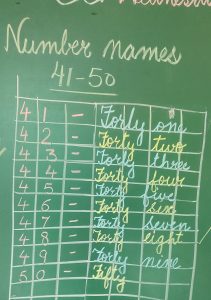 Number names
41-50
41 - Forty one
42 - Forty two
43 - Forty three
44 - Forty four
45 - Forty five
46 - Forty six
47 - Forty seven
48 - Forty eight
49 - Forty nine
50 - Fifty